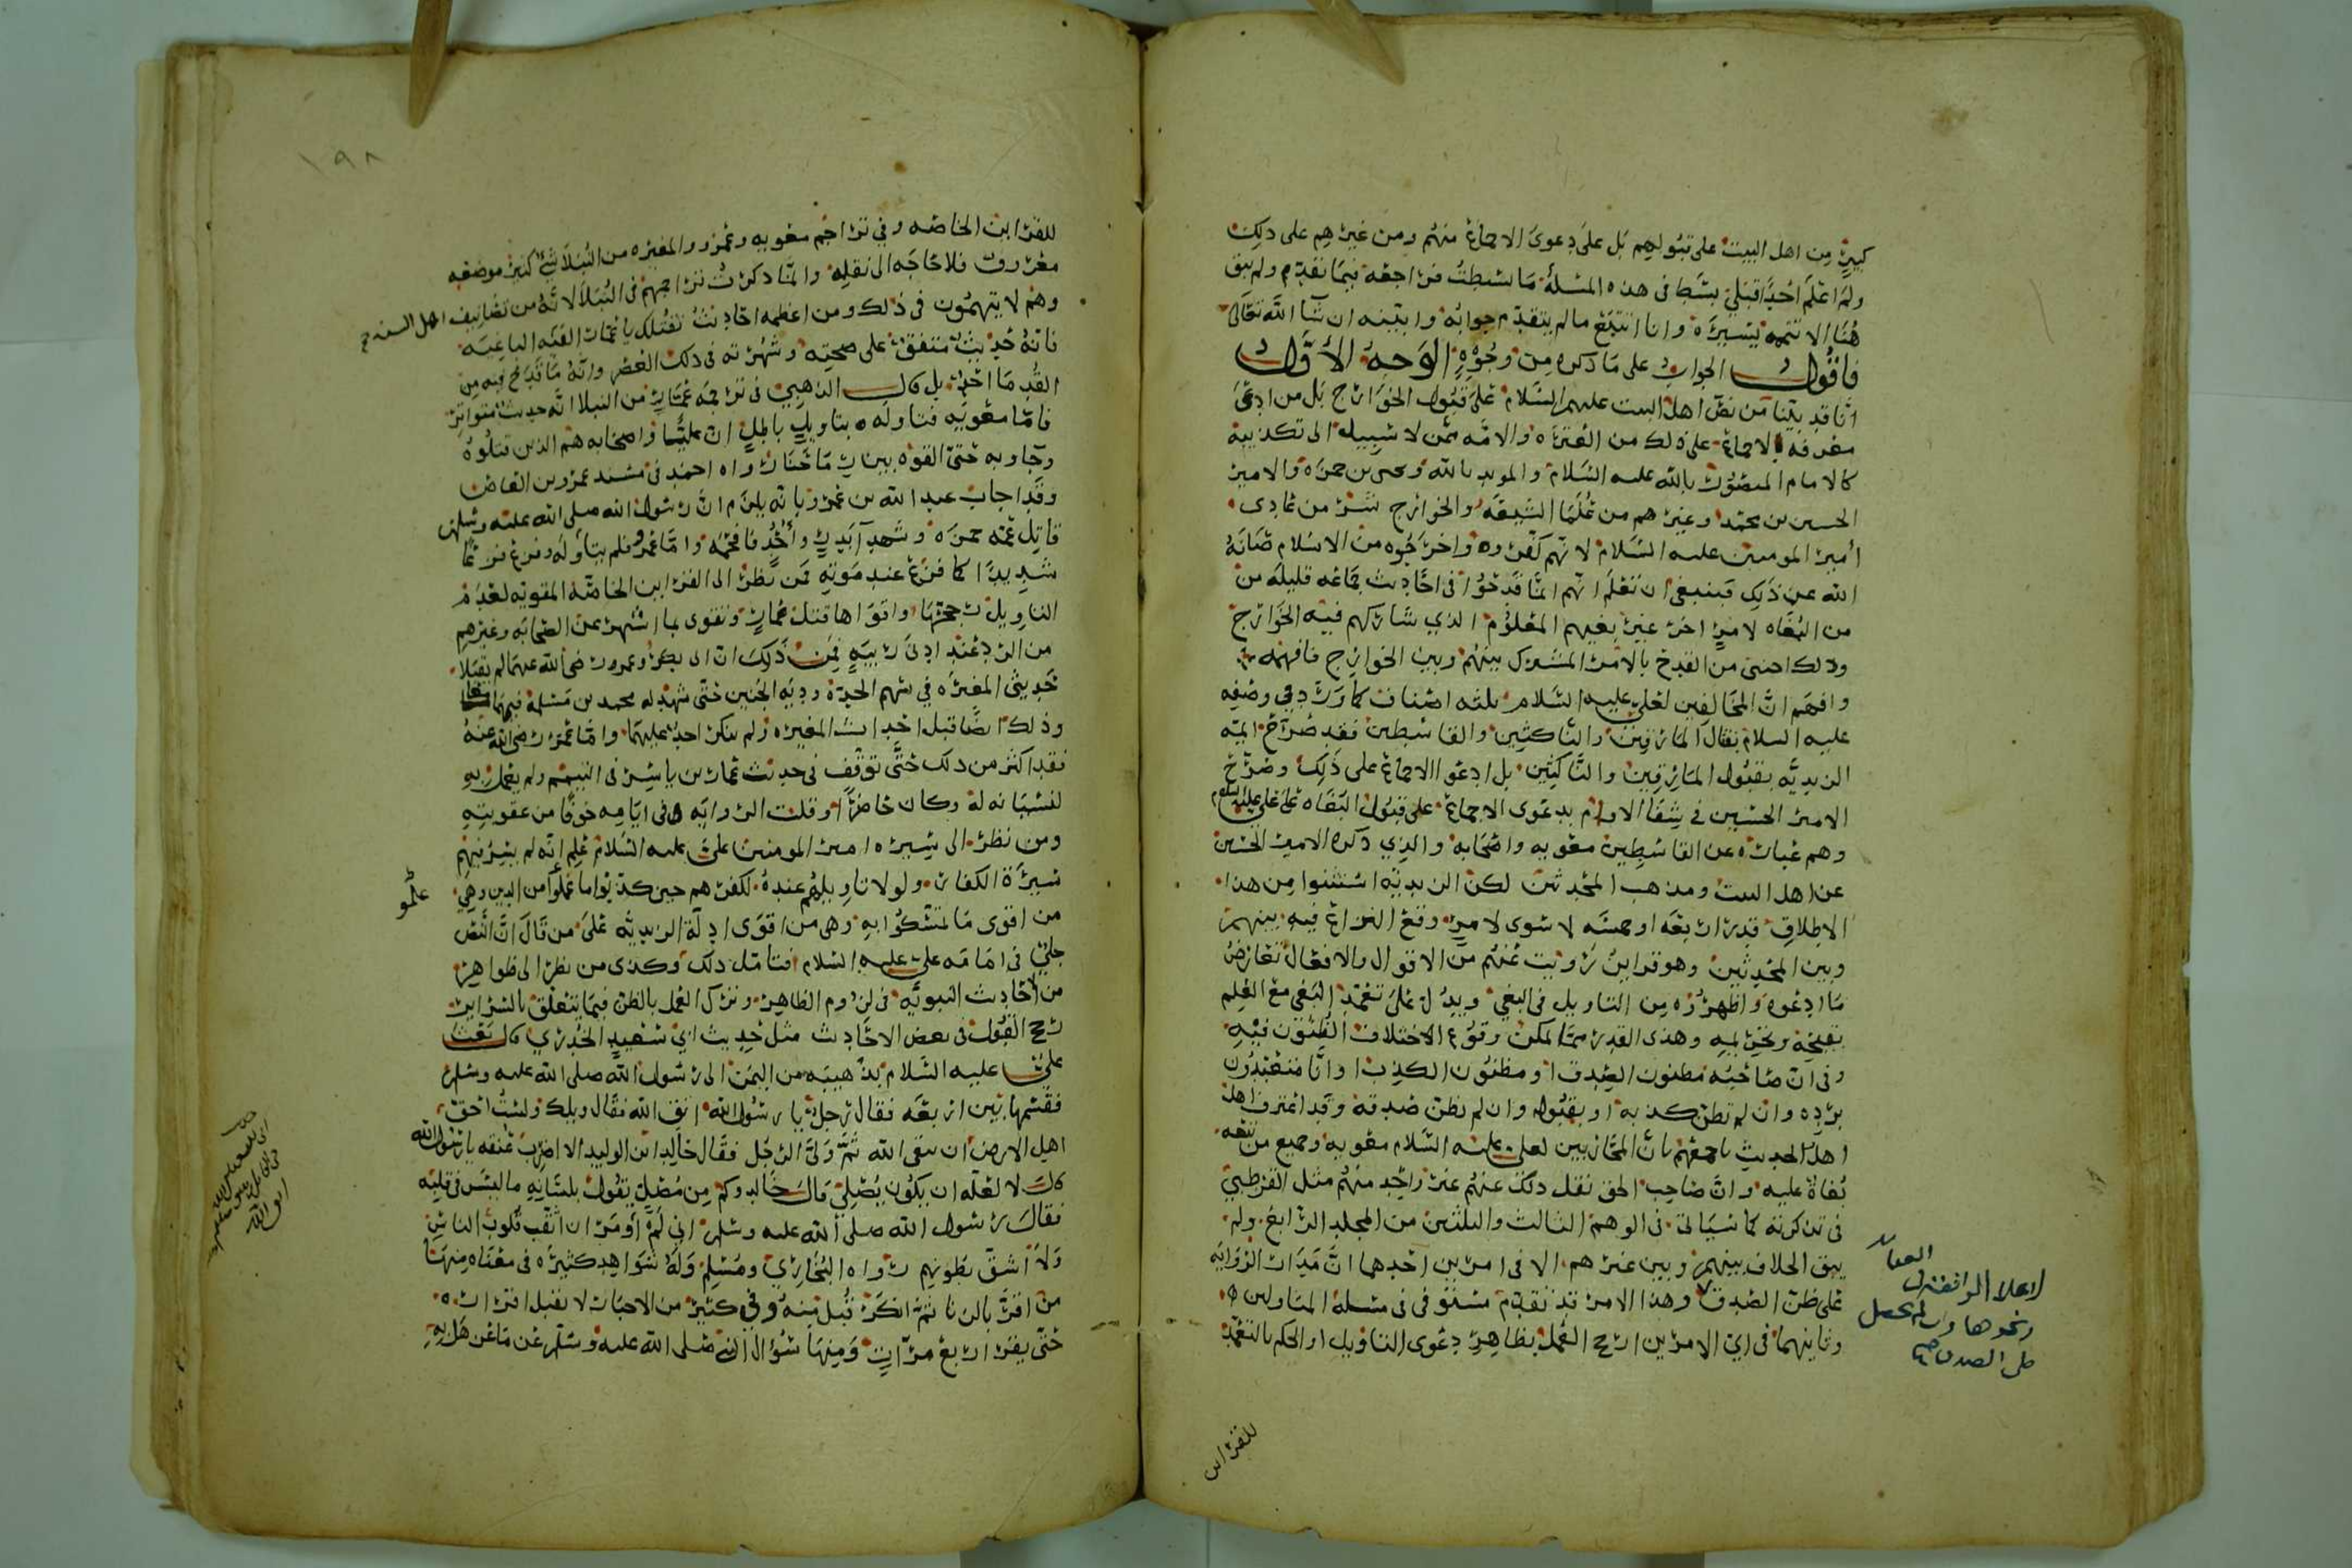 كبير من اهل البيت على قبولهم بل على دعوى الاجماع منهم ومن غيرهم على ذلك
ولم اعلم احدا قبلي بسط في هذه المسلة ما بسطت فراجعه فيما تقدم ولم يبق
هنا الا تتمه يسيره وانا اتتبع ما لم يتقدم جوابه وابينه ان شا الله تعالى
فاقول الجواب على ما ذكره من وجوه الوجه الأول
انا قد بينا من نص اهل البيت عليهم السلام على قبول الخوارج بل من ادعى
معرفة الاجماع على ذلك من العتره والامه ممن لا سبيل الى تكذيبه
كالامام المنصور بالله عليه السلام والمويد بالله ويحيى بن حمزه والامير
الحسين بن محمد وغيرهم من علما الشيعه والخوارج شر من عادى
أمير المومنين عليه السلام لانهم كفروه واخرجوه من الاسلام صانه
الله عن ذلك فينبغي ان تعلم انهم انما قدحوا في احاديث جماعه قليله من
من البغاه لامر اخر غير بغيهم المعلوم الذي شاركهم فيه الخوارج
وذلك احسن من القدح بالامر المشترك بينهم وبين الخوارج فافهمه
وافهم ان المخالفين لعلي عليه السلام ثلثه اصناف كما ورد في وصفه
عليه السلام بقتال المارقين والناكثين والقاسطين فقد صرح ايمه
الزيديه بقبول المارقين والناكثين بل ادعوا الاجماع على ذلك وصرح
الامير الحسين في شفا الاوام بدعوى الاجماع على قبول البغاه على علي عليه السلام
وهم عباره عن القاسطين معويه واصحابه والذي ذكره الامير الحسين
عن اهل البيت ومذهب المحدثين لكن الزيديه استثنوا من هذا
الاطلاق قدر اربعه او خمسه لا سوى لامر وقع النزاع فيه بينهم
وبين المحدثين وهو قراين رويت عنهم من الاقوال والافعال تعارض
ما ادعوه واظهروه من التاويل في البغي ويدل على تعمد البغي مع العلم
بقبحه وتحريمه وهذى القدر مما يمكن وقوع الاختلاف الظنون فيه
وفي ان صاحبه مظنون الصدق او مظنون الكذب وانا متعبدون
برده وان لم نظن كذبه او بقبوله وان لم نظن صدقه وقد اعترف اهل
اهل الحديث باجمعهم بان المحاربين لعلي عليه السلام معويه وجميع من تبعه
بغاة عليه وان صاحب الحق نقل ذلك عنهم غير واحد منهم مثل القرطبي
في تذكرته كما سياتي في الوهم الثالث والثلثين من المجلد الرابع ولم
يبق الخلاف بينهم وبين غيرهم الا في امرين احدهما ان مدار الروايه
على ظن الصدق وهذا الامر قد تقدم مستوفى في مسلة المتاولين
وثانيهما في اي الامرين ارجح العمل بظاهر دعوى التاويل او الحكم بالتعمد
ونحوها وان لم يحصل
ظن الصدق صح
للقراين
١٩٨
للقراين الخاصه وفي تراجم معويه وعمرو والمغيره من النبلا شي كثير موضعه
معروف فلا حاجه الى نقله وانما ذكرت تراجمهم في النبلا لانه من تصانيف اهل السنه
وهم لا يتهمون في ذلك ومن اعظمه احاديث تقتلك يا عمار الفئه الباغيه
فانه حديث متفق على صحته وشهرته في ذلك العصر وانه ما قدح فيه من
القدما احد بل قال الذهبي في ترجمه عمار من النبلا انه حديث متواتر
فاما معويه فتاوله بتاويل باطل ان عليا واصحابه هم الذين قتلوه
وجاوا به حتى القوه بين رماحنا رواه احمد في مسند عمرو بن العاص
وقد اجاب عبد الله بن عمرو بانه يلزم ان رسول الله صلى الله عليه وسلم
قاتل عمه حمزه وشهدآ بدر وأحد فافحمه واما عمرو فلم يتاوله وفزع فزعا
شديدا كما فزع عند موته فمن نظر الى القراين الخاصه المقويه لعدم
التاويل رجحها واقواها قتل عمار وتقوى بما اشتهر عن الصحابه وغيرهم
من الرد عند ادنى ريبه فمن ذلك ان ابا بكر وعمر رضي الله عنهما لم يقبلا
حديثي المغيره في سهم الجده وديه الجنين حتى شهد له محمد بن مسلمة فيهما معا
وذلك ايضا قبل احداث المغيره ولم ينكر احد عليهما واما عمر رضي الله عنه
فقد اكثر من ذلك حتى توقف في حديث عمار بن ياسر في التيمم ولم يعمل به
لنسيانه له وكان حاضرا وقلت الروايه في ايامه خوفا من عقوبته
ومن نظر الى سيره امير المومنين علي عليه السلام علم انه لم يسر فيهم
سيرة الكفار ولولا تاويلهم عنده لكفرهم حين كذبوا ما علموا من الدين وهي
علموا
من اقوى ما تمسكوا به وهي من اقوى ادلة الزيديه على من قال ان النص
جلي في امامه علي عليه السلام فتامل ذلك وكذى من نظر الى ظواهر
من احاديث النبويه في لزوم الظاهر وترك العمل بالظن فيما يتعلق بالسراير
رجح القبول في بعض الاحاديث مثل حديث ابي سعيد الخدري قال بعث
علي عليه السلام بذهيبه من اليمن الى رسول الله صلى الله عليه وسلم
فقسمها بين اربعه فقال رجل يا رسول الله اتق الله فقال ويلك اولست احق
اهل الارض ان يتقي الله ثم ولى الرجل فقال خالد ابن الوليد الا اضرب عنقه يا رسول الله
قال لا لعله ان يكون يصلي قال خالد وكم من مصل يقول بلسانه ما ليس في قلبه
فقال رسول الله صلى الله عليه وسلم اني لم أومر ان انقب قلوب الناس
ولا اشق بطونهم رواه البخاري ومسلم وله شواهد كثيره في معناه منها
من اقر بالزنا ثم انكر قبل منه وفي كثير من الاخبار لا يقبل اقراره
حتى يقر اربع مرات ومنها سؤال النبي صلى الله عليه وسلم عن ماعز هل به